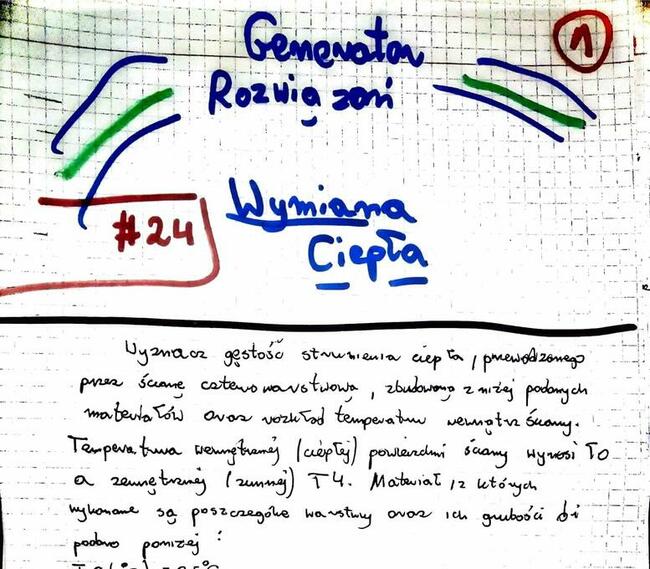 Generator
Rozwiązań
1
#24
Wymiana
Ciepła
Wyznacz gęstość strumienia ciepła, przewodzonego
przez ścianę czterowarstwową, zbudowaną z niżej podanych
materiałów oraz rozkład temperatur wewnątrz ściany.
Temperatura wewnętrznej (ciepłej) powierzchni ściany wynosi T0
a zewnętrznej (zimnej) T4. Materiał, z których
wykonane są poszczególne warstwy oraz ich grubości di
podano poniżej: